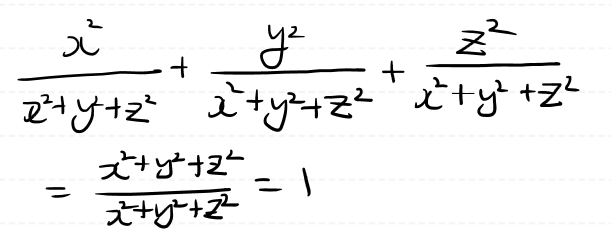 x²/(x²+y²+z²) + y²/(x²+y²+z²) + z²/(x²+y²+z²)
= (x²+y²+z²)/(x²+y²+z²) = 1